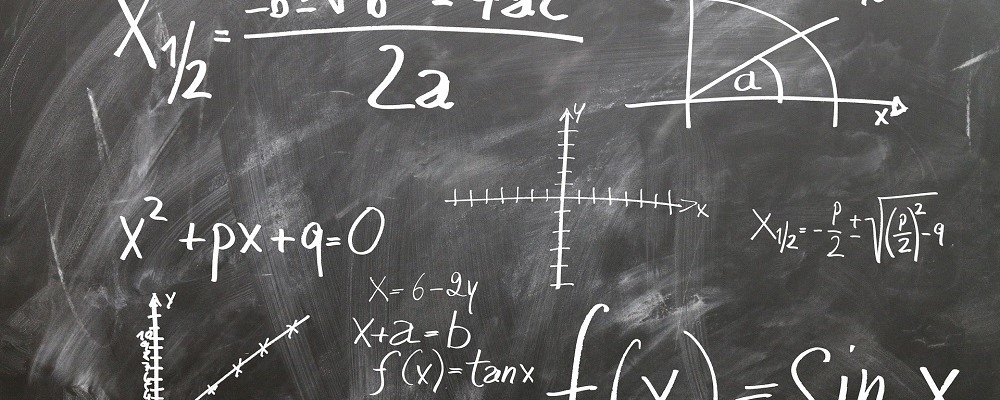 X1/2 = -b±√b²-4ac
2a
a
x
y
x
x² + px + q = 0
X1/2 = -p/2 ± √(p/2)² - q
X = 6 - 2y
x + a = b
f(x) = tan x
y
f(x) = Sin x